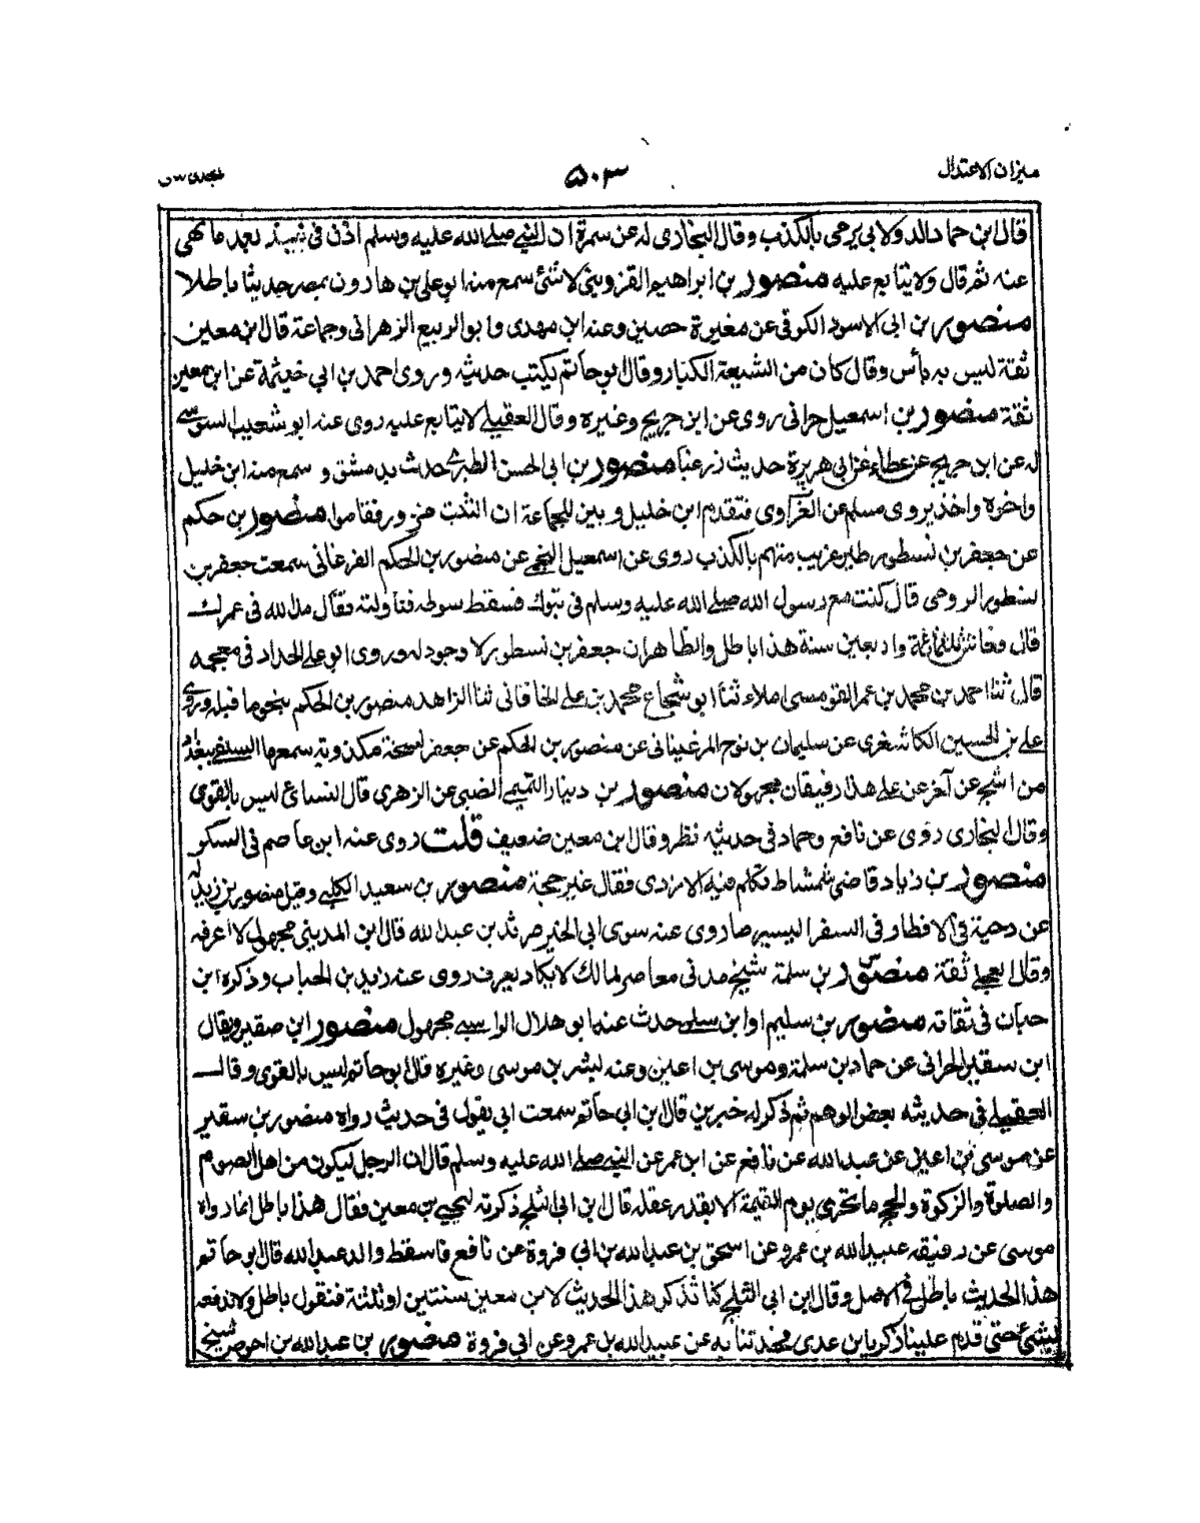 ميزان الاعتدال
۵۰۳
جلد
قال ابن حماد الدولابي يرمى بالكذب وقال البخارى له عن سمرة ان النبي صلى الله عليه وسلم اذن فى نبيذ بعد ما نهى
عنه ثم قال ولا يتابع عليه منصور بن ابراهيم القزويني لا شئ سمع منه ابو على بن هارون بمصر حديثا باطلا
منصور بن ابى الاسود الكوفى عن مغيرة حصين وعنه ابن مهدى وابو الربيع الزهرانى وجماعة قال ابن معين
ثقة ليس به بأس وقال كان من الشيعة الكبار وقال ابو حاتم يكتب حديثه وروى احمد بن ابى خيثمة عن ابن معين
ثقة منصور بن اسمعيل حرانى روى عن ابن جريج وغيره وقال العقيلے لا يتابع عليه روى عنه ابو شعيب السوسے
له عن ابن جريج عن عطاء عن ابى هريرة حديث زر غبا منصور بن ابى الحسن الطبرے حدث بدمشق وسمع منه ابن خليل
واخوه واخذ يروى مسلم عن الفراوى فتقدم ابن خليل وبين للجماعة ان الثبت ورفقاموا منصور بن حكم
عن جعفر بن نسطور طير غريب متهم بالكذب روى عن اسمعيل عن منصور بن الحكم الفرغانى سمعت جعفر بن
نسطور الرومى قال كنت مع رسول الله صلے الله عليه وسلم فى تبوك فسقط سوطه فناولته فقال مد الله فى عمرك
قال وعاش ثلثمائة واربعين سنة هذا باطل والظاهر ان جعفر بن نسطور لا وجود له وروى ابو على الحداد فى معجمه
قال ثنا احمد بن محمد بن عمر القومسى املاء ثنا ابو شجاع محمد بن على الخاقانى ثنا الزاهد منصور بن الحكم بنحو ما قبله وروى
على بن الحسين الكاشغرى عن سليمان بن نوح المرغينانى عن منصور بن الحكم عن جعفر نسخة مكذوبة سمعها السلفے ببغداد
من اشج عن آخر عن على هذا رفيقان مجهولان منصور بن دينار التميمے الضبى عن الزهرى قال النسائى ليس بالقوى
وقال البخارى روى عن نافع وحماد فى حديثه نظر وقال ابن معين ضعيف قلت روى عنه ابن عاصم فى السكر
منصور بن زياد قاضى شمشاط تكلم فيه الازدى فقال غير حجة منصور بن سعيد الكلبے وقيل منصور بن زيد له
عن دحية فى الافطار فى السفر اليسير ما روى عنه سوى ابى الخير مرثد بن عبد الله قال ابن المدينى مجهول لا اعرفه
وقال العجلے ثقة منصور بن سلمة شيخ مدنى معاصر لمالك لا يكاد يعرف روى عنه زيد بن الحباب وذكره ابن
حبان فى ثقاته منصور بن سليم او ابن سلے حدث عنه ابو هلال الراسبے مجهول منصور ابن صقير ويقال
ابن سقير الحرانى عن حماد بن سلمة وموسى بن اعين وعنه بشر بن موسى وغيره قال ابو حاتم ليس بالقوى وقال
العقيلے فى حديثه بعض الوهم ثم ذكر له خبرين قال ابن ابى حاتم سمعت ابى يقول فى حديث رواه منصور بن سقير
عن موسى بن اعين عن عبد الله عن نافع عن ابن عمر عن النبے صلے الله عليه وسلم قال ان الرجل ليكون من اهل الصوم
والصلوة والزكوة والحج ما يجزى يوم القيمة الا بقدر عقله قال ابن ابى الثلج ذكرته ليحيى بن معين فقال هذا باطل انما رواه
موسى عن رفيقه عبيد الله بن عمرو عن اسحق بن عبد الله بن ابى فروة عن نافع فاسقط والد عبد الله قال ابو حاتم
هذا الحديث باطل فى الاصل وقال ابن ابى الثلج كنا نذكر هذا الحديث لابن معين سنتين او ثلثة فنقول باطل ولا ندفعه
بشئ حتى قدم علينا زكريا بن عدى فحدثنا به عن عبيد الله بن عمرو عن ابى فروة منصور بن عبد الله بن احوص شيخ